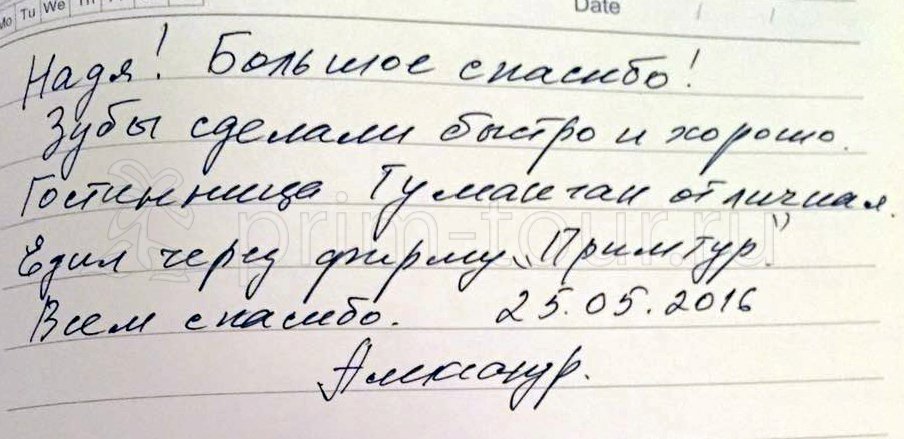 Mo Tu We Th Date / /
Надя! Большое спасибо!
Зубы сделали быстро и хорошо.
Гостинница Туманган отличная.
Ездил через фирму "Примтур".
Всем спасибо. 25.05.2016
Александр.
prim-tour.ru